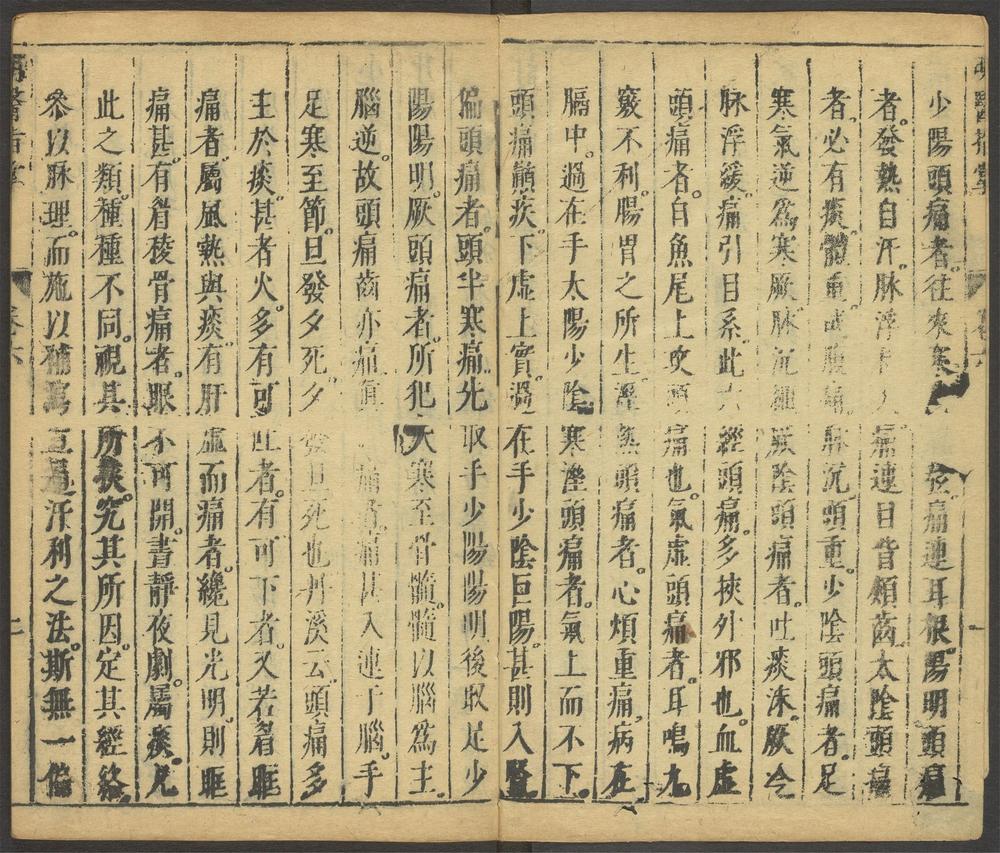 少陽頭痛者。往來寒 弦。痛連耳根。陽明頭痛
者。發熱自汗。脉浮 痛連目眥頰齒。太陰頭痛
者。必有痰。體重。或腹痛。脉沉頭重。少陰頭痛者。足
寒氣逆。爲寒厥。脉沉細。厥陰頭痛者。吐痰沫。厥冷。
脉浮緩。痛引目系。此六經頭痛。多挾外邪也。血虛
頭痛者。自魚尾上攻頭痛也。氣虛頭痛者。耳鳴九
竅不利。腸胃之所生。溼熱頭痛者。心煩重痛。病在
膈中。過在手太陽少陰。寒溼頭痛者。氣上而不下。
頭痛巔疾。下虛上實。過在手少陰巨陽。甚則入腎。
偏頭痛者。頭半寒痛。先取手少陽陽明。後取足少
陽陽明。厥頭痛者。所犯大寒至骨髓。髓以腦爲主。
腦逆。故頭痛齒亦痛。眞 痛者。痛甚入連于腦。手
足寒至節。旦發夕死。夕發旦死也。丹溪云。頭痛多
主於痰。甚者火。多有可吐者。有可下者。又若眉眶
痛者。屬風熱與痰。有肝虛而痛者。纔見光明。則眶
痛甚。有眉稜骨痛者。眼不可開。晝靜夜劇。屬痰。凡
此之類。種種不同。視其所挾。究其所因。定其經絡。
參以脉理。而施以補瀉 汗利之法。斯無一偏
卷六
二